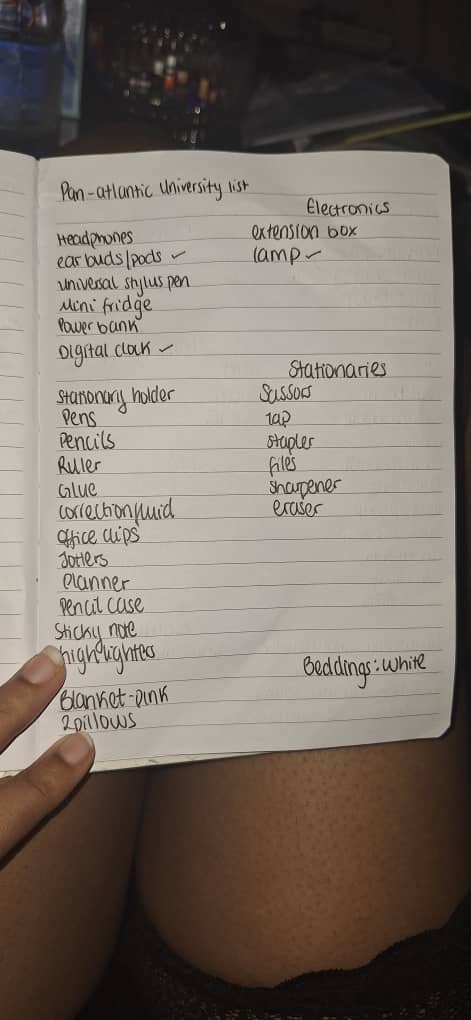 Pan-atlantic University list
Electronics
Headphones
ear buds/pods ✓
universal stylus pen
Mini fridge
Power bank
Digital clock ✓
extension box
lamp ✓
Stationaries
Stationary holder
Pens
Pencils
Ruler
Glue
correction fluid
office clips
Jotters
Planner
Pencil case
Sticky note
highlighters
Sussors
Tap
stapler
files
sharpener
eraser
Beddings: White
Blanket-pink
2 pillows